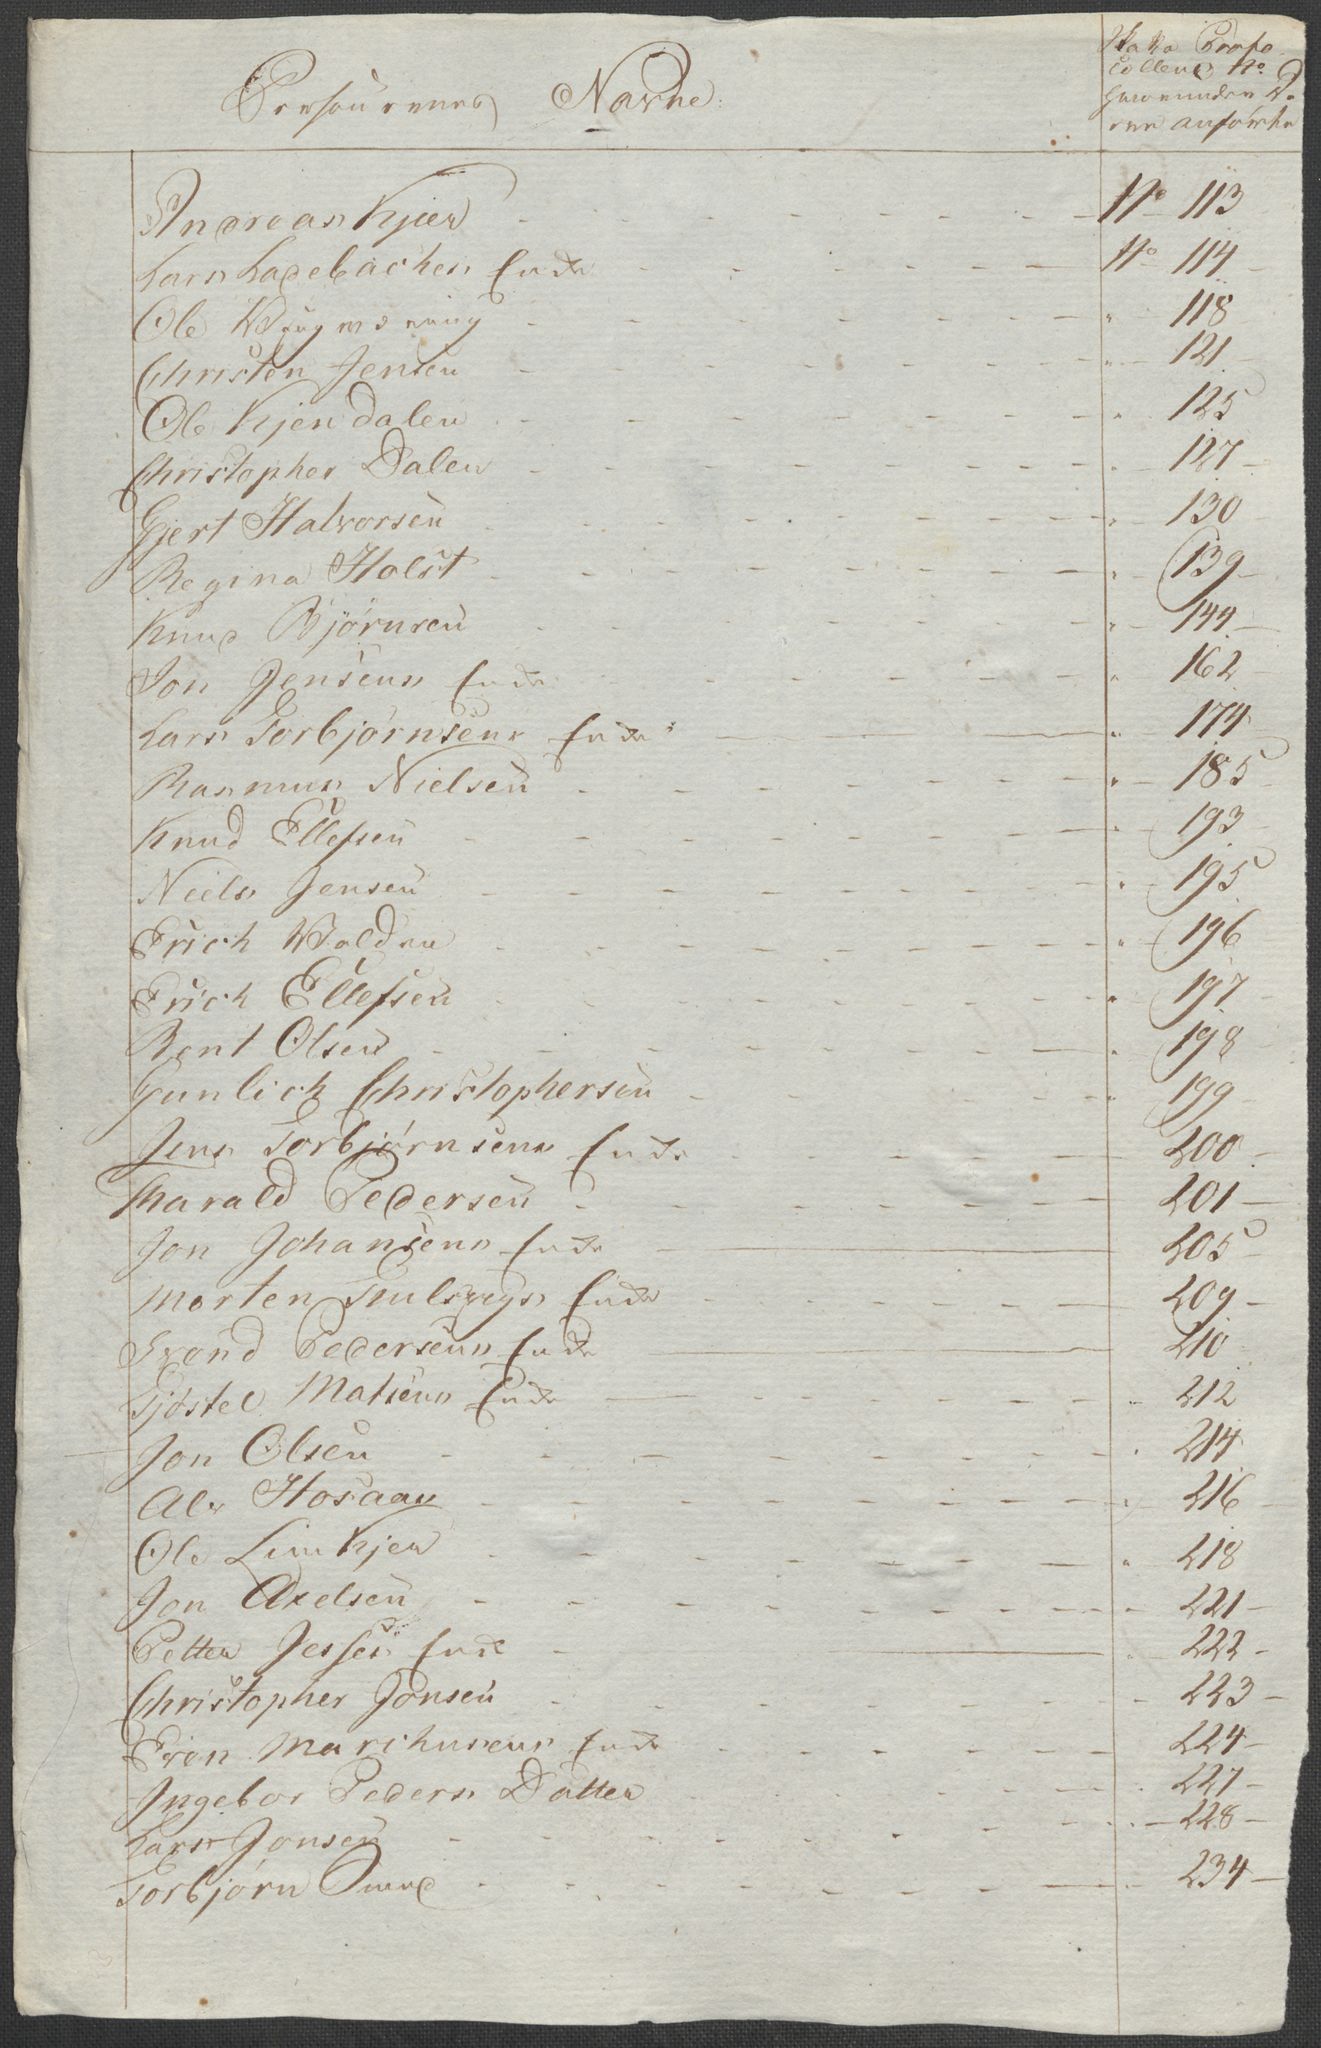 Persounenes Navne:
Skatte Proto
collens No
hvorunder D
ere anførte
Andreas Kjær No 113
Lars Ladebachen Enke No 114
Ole 118
Christen Jensen 121
Ole Kjendalen 125
Christopher Dalen 127
Gjert Halvorsen 130
Regina Holst 139
Knud Bjørnsen 144
Jon Jensens Enke 162
Lars Torbjørnsens Enke 174
Rasmus Nielsen 185
Knud Ellefsen 193
Niels Jensen 195
Erich Wolden 196
Erich Ellefsen 197
Bent Olsen 198
Gunlich Christophersen 199
Jens Torbjørnsens Enke 200
Harald Pedersen 201
Jon Johansens Enke 205
Morten Enke 209
Svend Pedersens Enke 210
Gjøstel Matsens Enke 212
Jon Olsen 214
Abr Hosaas 216
Ole Limkjer 218
Jon Axelsen 221
Petter Enke 222
Christopher Jonsen 223
Even Marchusens Enke 224
Ingebor Peders Datter 227
Lars Jonsen 228
Torbjørn 234